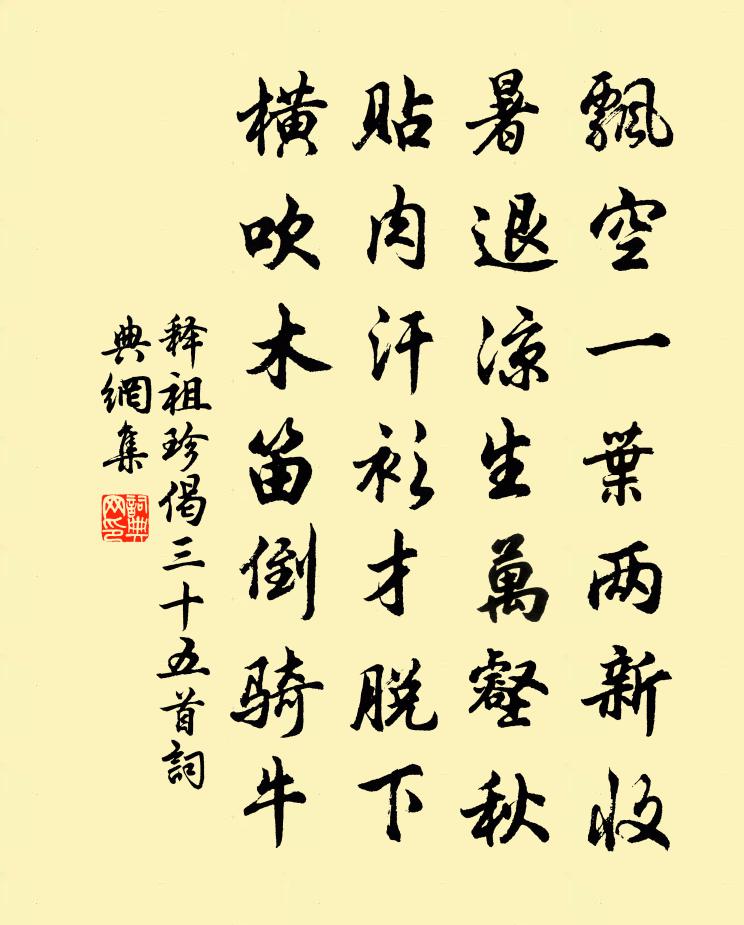 飄空一葉两新收
暑退涼生萬壑秋
貼肉汗衫才脫下
橫吹木笛倒騎牛
释祖珍偈三十五首詞
典網集
詞典
网印